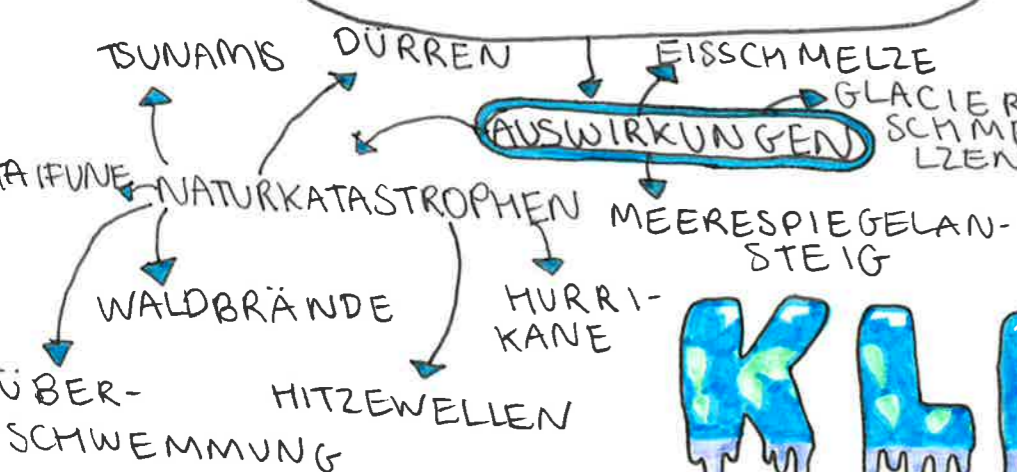 TSUNAMIS
DÜRREN
EISSCHMELZE
GLACIER
SCHME
LZEN
AUSWIRKUNGEN
TAIFUNE
NATURKATASTROPHEN
MEERESPIEGELAN-
STEIG
WALDBRÄNDE
HURRI-
KANE
ÜBER-
SCHWEMMUNG
HITZEWELLEN
KL